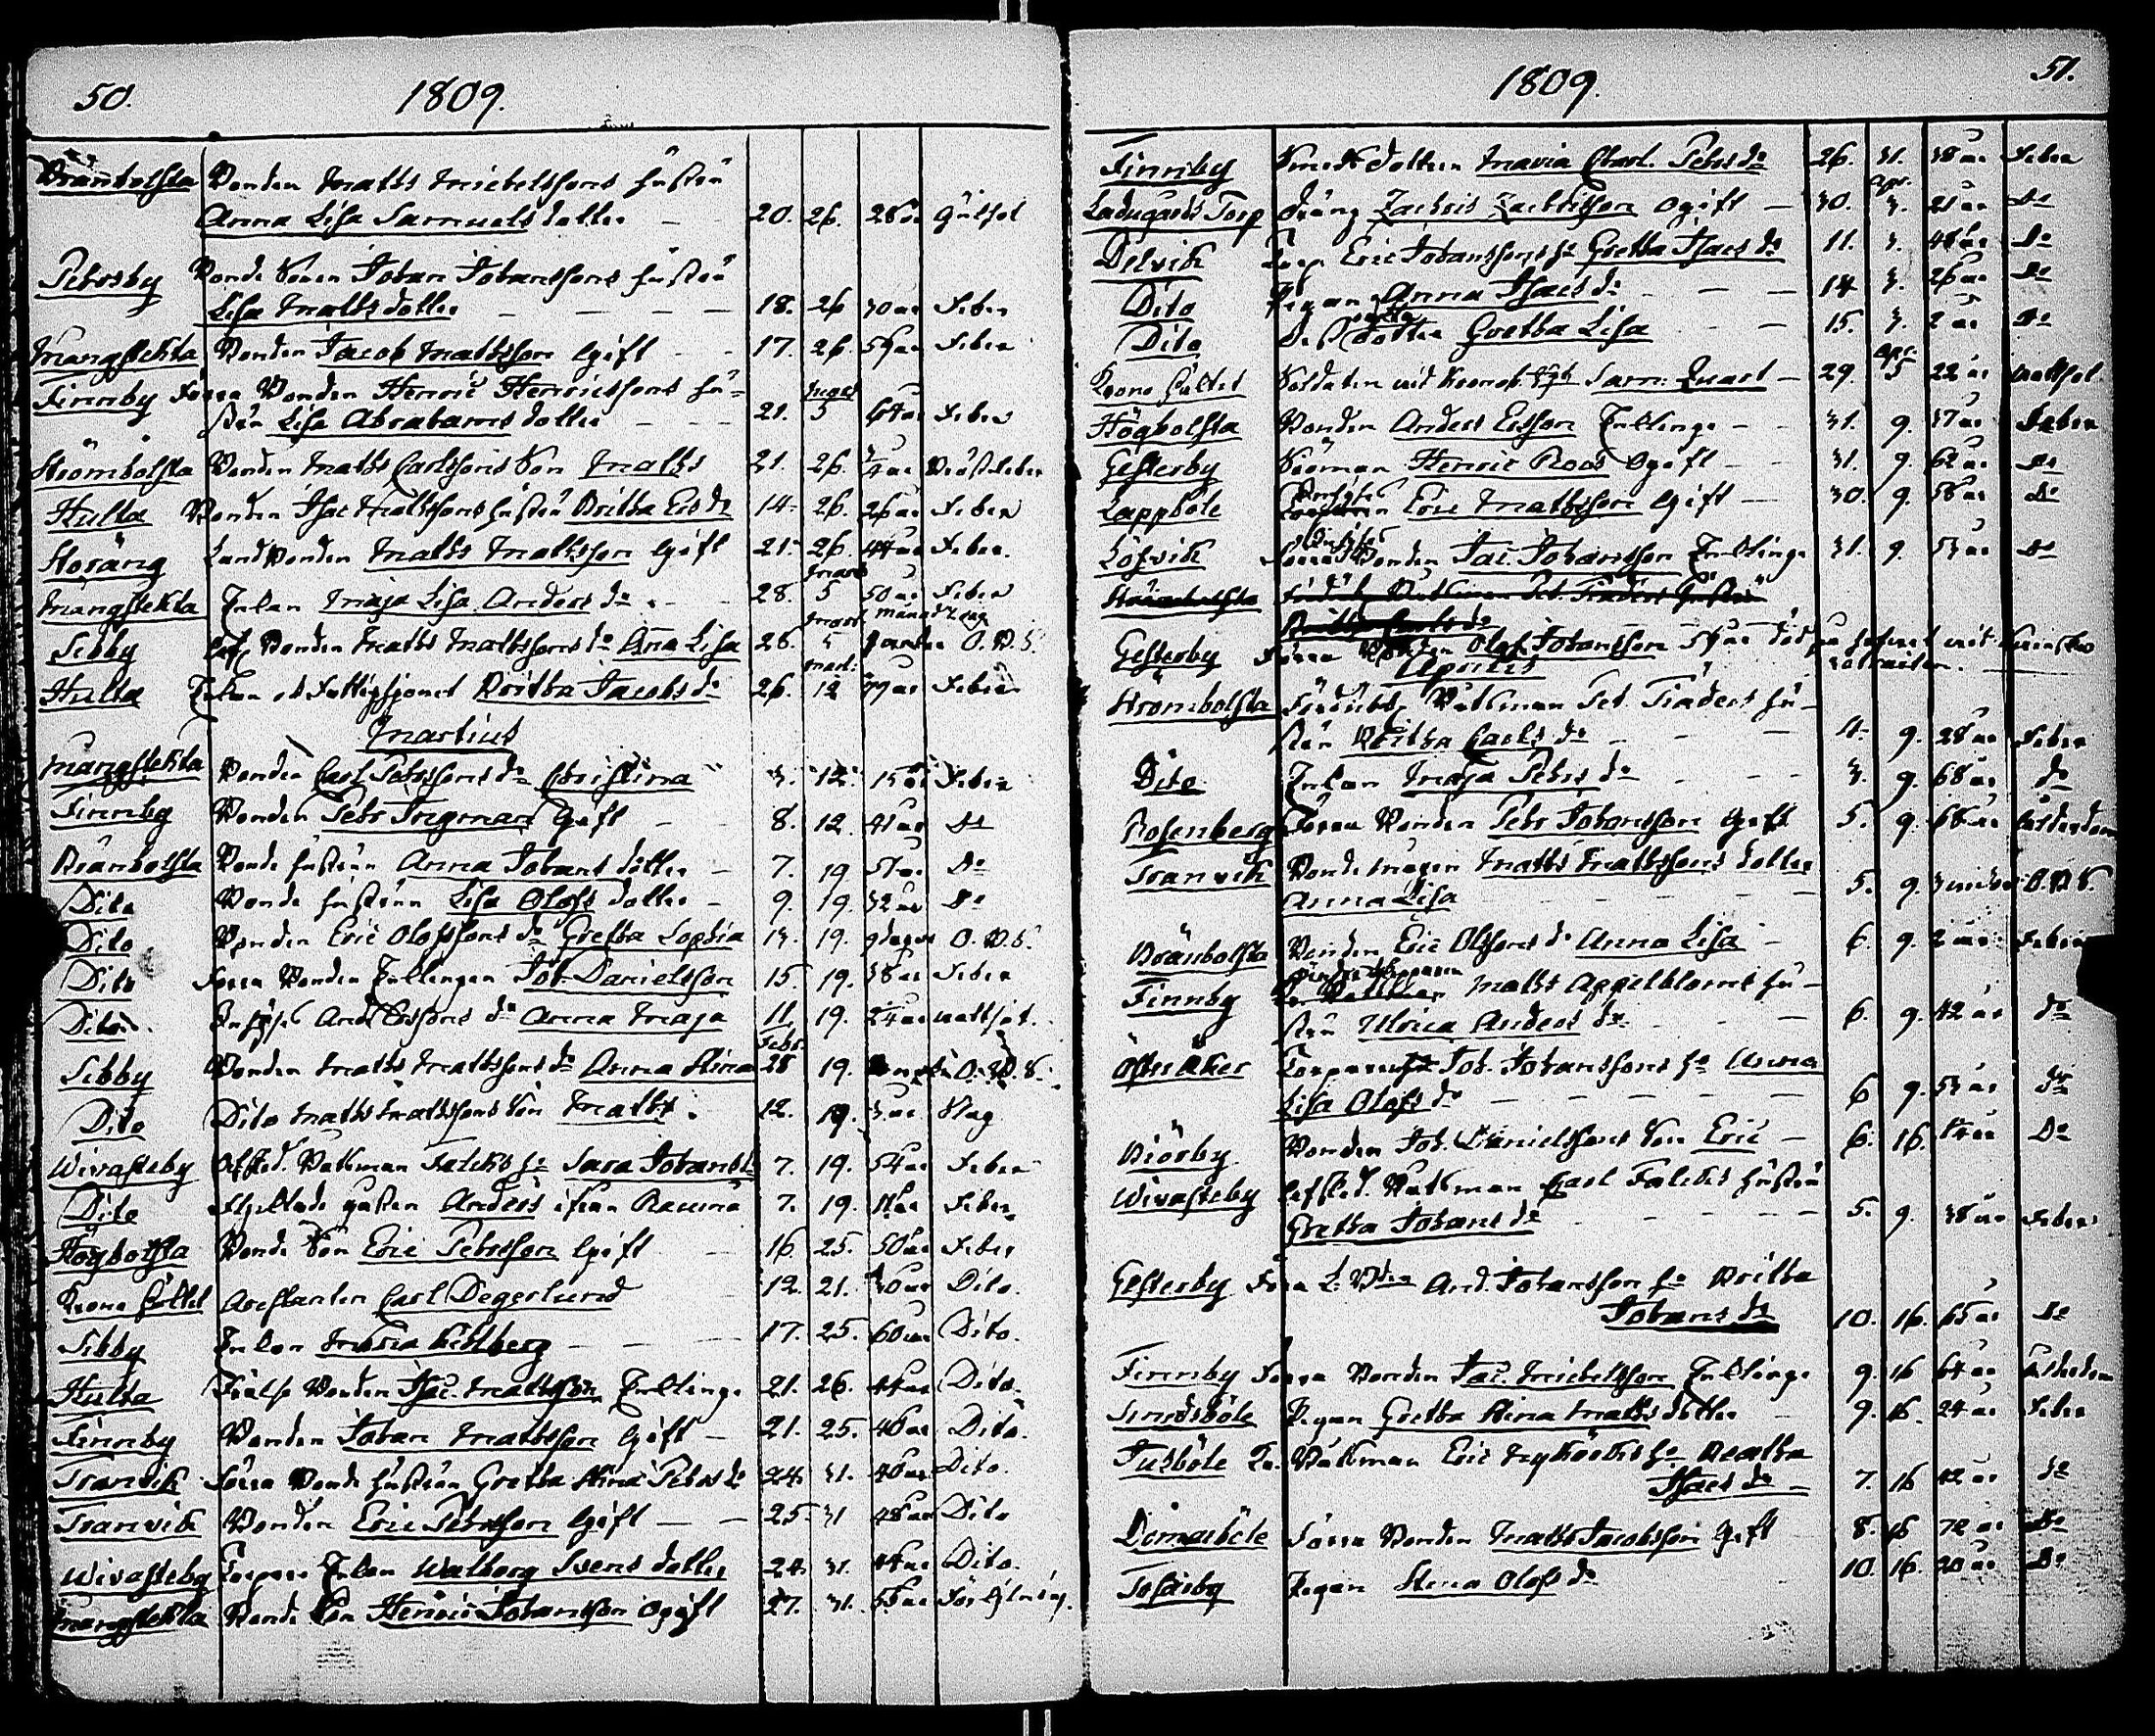 50. 1809.
Brännbolsta Bonden Matts Michelssons hustru
Anna Lisa Samuels dotter — 20. 26. 28 år Gulsot
Pehrsby Bonde Sonen Johan Johanssons hustru
Lisa Matts dotter — — — 18. 26 30 år Feber
Mangslekta Bonden Jacob Mattsson Gift — 17. 26. 59 år Feber
Finnby Förra Bonden Henric Henricssons hu-
stru Lisa Abrahams dotter — — 21. 5 64 år Feber
Strömbolsta Bonden Matts Carlssons Son Matts 21. 26. Bröstfeber
Hulta Bonden Isac Mattssons hustru Britha Ers dr 14. 26. 26 år Feber
Storäng Landbonden Matts Mattsson Gift 21. 26. 44 år Feber.
Mangslekta Enkan Maja Lisa Anders dr — 28. Mars 5 50 år Feber
Sebby Bonden Matts Mattssons dr Anna Lisa 26. Mars 5 O. B. S.
Hulta Enkan Britha Jacobs dr 26. Mart: 12 77 år Feber
Martius
Mangslekta Bonden Carl Pehrssons dr Christina 3. 12. 15 år Feber
Finnby Bonden Pehr Ingman Gift — 8. 12. 41 år Do
Brännbolsta Bonde hustrun Anna Johans dotter — 7. 19 51 år Do
Dito Bonde hustrun Lisa Olofs dotter — 9. 19. 32 år Do
Dito Bonden Eric Olofssons dr Gretha Sophia 13. 19. 9 dagar O. B. S.
Dito Förra Bonden Enklingen Joh. Danielsson 15. 19. 38 år Feber
Dito And. Erssons dr Anna Maja 11. 19. 24 år Wattsot.
Sebby Bonden Matts Mattssons dr Anna Stina Febr. 28 19. O. B. S.
Dito Dito Matts Mattssons Son Matts. 12. 19. 3 år Slag
Wivasteby Afsked. Båtsman Falcks ho Sara Johans dr 7. 19. 54 år Feber
Dito gossen Anders ifrån Raumo 7. 19. Feber
Högbolsta Bonde Son Eric Pehrsson Gift — 16. 25. 50 år Feber
Krono Häktet Arrestanten Carl Degerlund 12. 21. 30 år Dito.
Sebby Enkan Maria Fihlberg — — 17. 25. 60 år Dito.
Hulta Frälse Bonden Isac Mattsson Enkling 21. 26. 44 år Dito.
Finnby Bonden Johan Mattsson Gift — 21. 25. 46 år Dito.
Tranvik Förra Bonde hustrun Gretha Stina Pehrs dr 24. 31. 46 år Dito.
Tranvik Bonden Eric Pehrsson Gift — — 25. 31 48 år Dito
Wivasteby Torpare Enkan Walborg Svens dotter 24. 31. 44 år Dito.
Mangslekta Bonde Son Henric Johansson Ogift 27. 31. 55 år
1809. 51.
Finnby Smeds dottern Maria Charl. Pehrs dr 26. 31. 38 år Feber
Ladugårds Torp Dräng Zachris Zachrisson Ogift — 30. Apr. 3. 21 år Do
Delvik Torp. Eric Johanssons ho Gretha Isacs dr 11. 3. 48 år Do
Dito Pigan Anna Isacs dr — — — 14 3. 26 år Do
Dito Dess dotter Gretha Lisa — — 15. 3. 2 år Do
Krono Häktet Soldaten vid Sam: Quast — 29. Apr. 5 22 år Wattsot
Högbolsta Bonden Anders Ersson Enkling — — 31. 9. 37 år Feber
Gesterby Sjöman Henric Roos Ogift — — 31. 9. 62 år Do
Lappböle Eric Mattsson Gift — 30. 9. 56 år Do
Löfvik Bonden Jac. Johansson Enkling 31. 9. 53 år Do
Gesterby Förra Bonden Olof Johansson 59 år
Aprilis
Strömbolsta Båtsman Pet. Träders hu-
stru Britha Carls dr — — — 4. 9. 28 år Feber
Dito Enkan Maja Pehrs dr — — — 3. 9. 68 år Do
Rosenberg Förra Bonden Pehr Johansson Gift 5. 9. 68 år Ålderdom
Tranvik Bonde mågen Matts Mattssons dotter
Anna Lisa — — — 5. 9. O. B. S.
Brännbolsta Bonden Eric Olssons dr Anna Lisa — 6. 9. 2 år Feber
Finnby Matts Appelbloms hu-
stru Ulrica Anders dr — — 6. 9. 42 år Do
Öfwer Åker Torparen Joh. Johanssons ho Anna
Lisa Olofs dr — — — — 6 9. 53 år Do
Biörby Bonden Joh. Danielssons Son Eric — 6. 16. Do
Wivasteby Afsked. Båtsman Carl Falcks hustru
Gretha Johans dr — — — 5. 9. 38 år Feber
Gesterby Förra And. Johansson ho Britha
Johans dr 10. 16. 65 år Do
Finnby Förra Bonden Jac. Michelsson Enkling 9. 16 64 år Ålderdom
Sundsböle Pigan Gretha Stina Matts dotter — 9. 16. 24 år Feber
Tusböle Båtsman Eric ho Beatha
Isacs dr 7. 16 42 år Do
Domarböle Förra Bonden Matts Jacobsson Gift 8. 16 72 år Do
Tosarby Pigan Stina Olofs dr 10. 16. 20 år Do